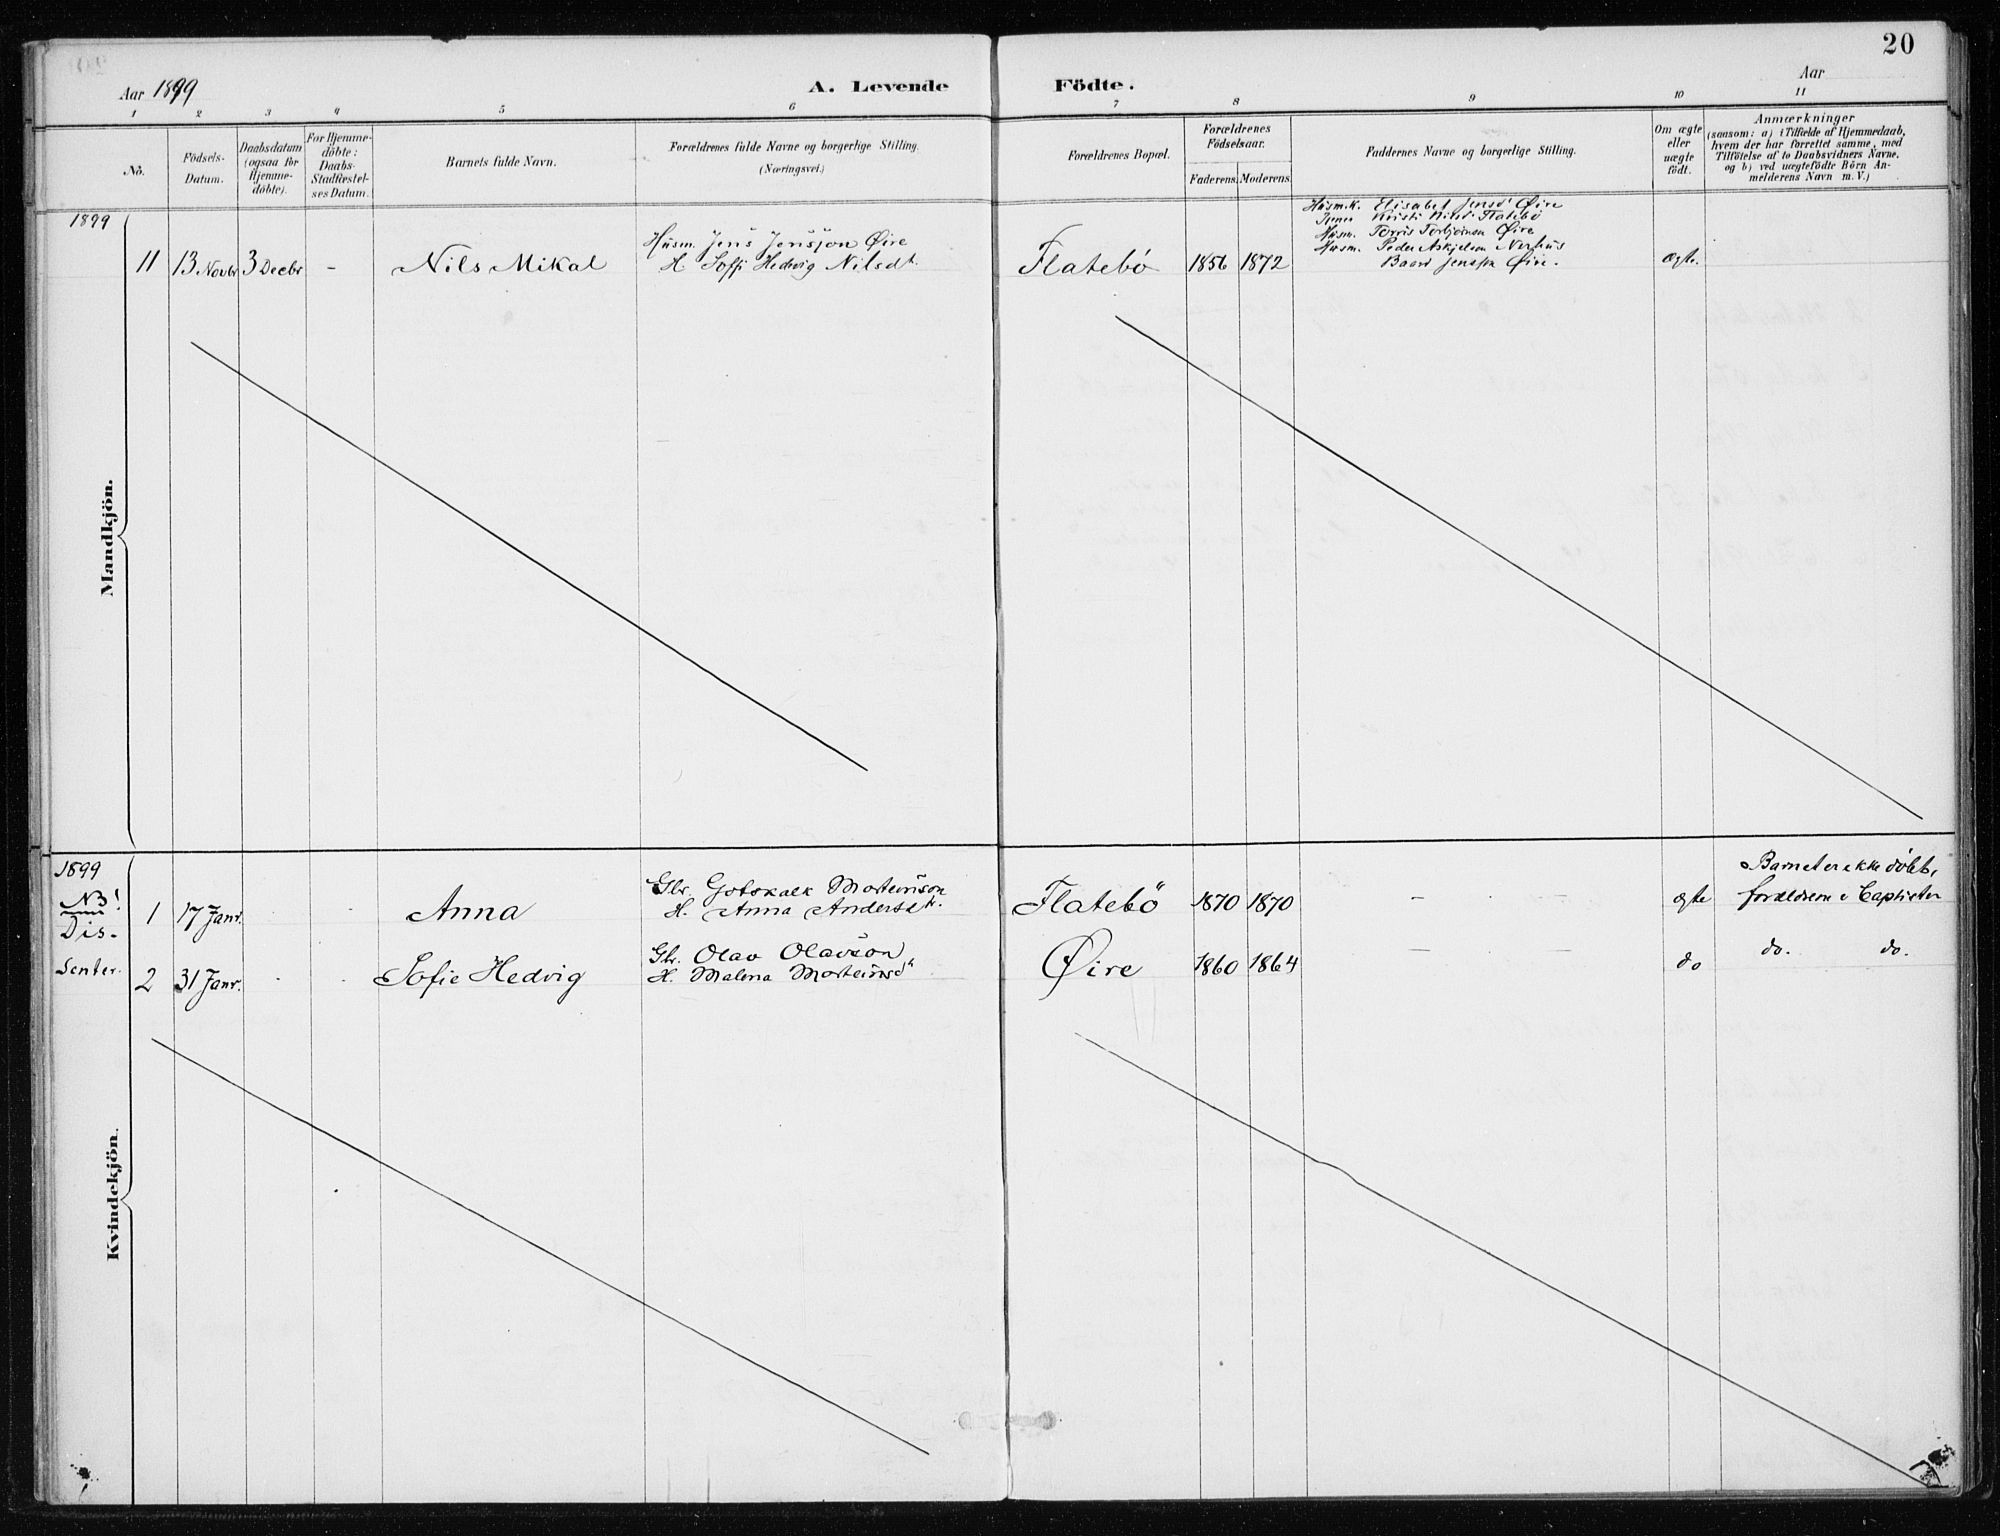 20
Aar 1899
A. Levende Födte.
Aar
1 2 3 4 5 6 7 8 9 10 11
No.
Födsels-
Datum.
Daabsdatum
(ogsaa for
Hjemme-
döbte).
For Hjemme-
döbte:
Daabs-
Stadfæstel-
ses Datum.
Barnets fulde Navn.
Forældrenes fulde Navne og borgerlige Stilling.
(Næringsvei.)
Forældrenes Bopæl.
Forældrenes
Födselsaar.
Faderens. Moderens.
Faddernes Navne og borgerlige Stilling.
Om ægte
eller
uægte
födt.
Anmærkninger
(saasom: a) i Tilfælde af Hjemmedaab,
hvem der har forrettet samme, med
Tilföielse af to Daabsvidners Navne.
og b) ved uægtefödte Börn An-
melderens Navn m. V.)
1899
Mandkjön.
11 13 Novbr 3 Decbr - Nils Mikal
Husm. Jens Jensson Øire
H. Soffi Hedevig Nilsdt
Flatebö 1856 1872
Husm.k. Elisabet Jensd Øire
Kristi Flatebö
Husm. Torris Torbjörnson Øire
Husm. Peder Askjelson Nerhus
Baard Jensson Øire.
Ægte.
1899
NB!
Dis-
senter.
Kvindekjön.
1 17 Janr. Anna
Gbr. Gotskalk Morteinson
H. Anna Andersdtr.
Flatebö 1870 1870 - - ægte
Barnet er ikke döbt,
forældrene e Baptister
2 31 Janr. Sofie Hedvig
Gbr. Olav Olavson
H. Malena Morteinsd
Øire 1860 1864 - - do
do. do.